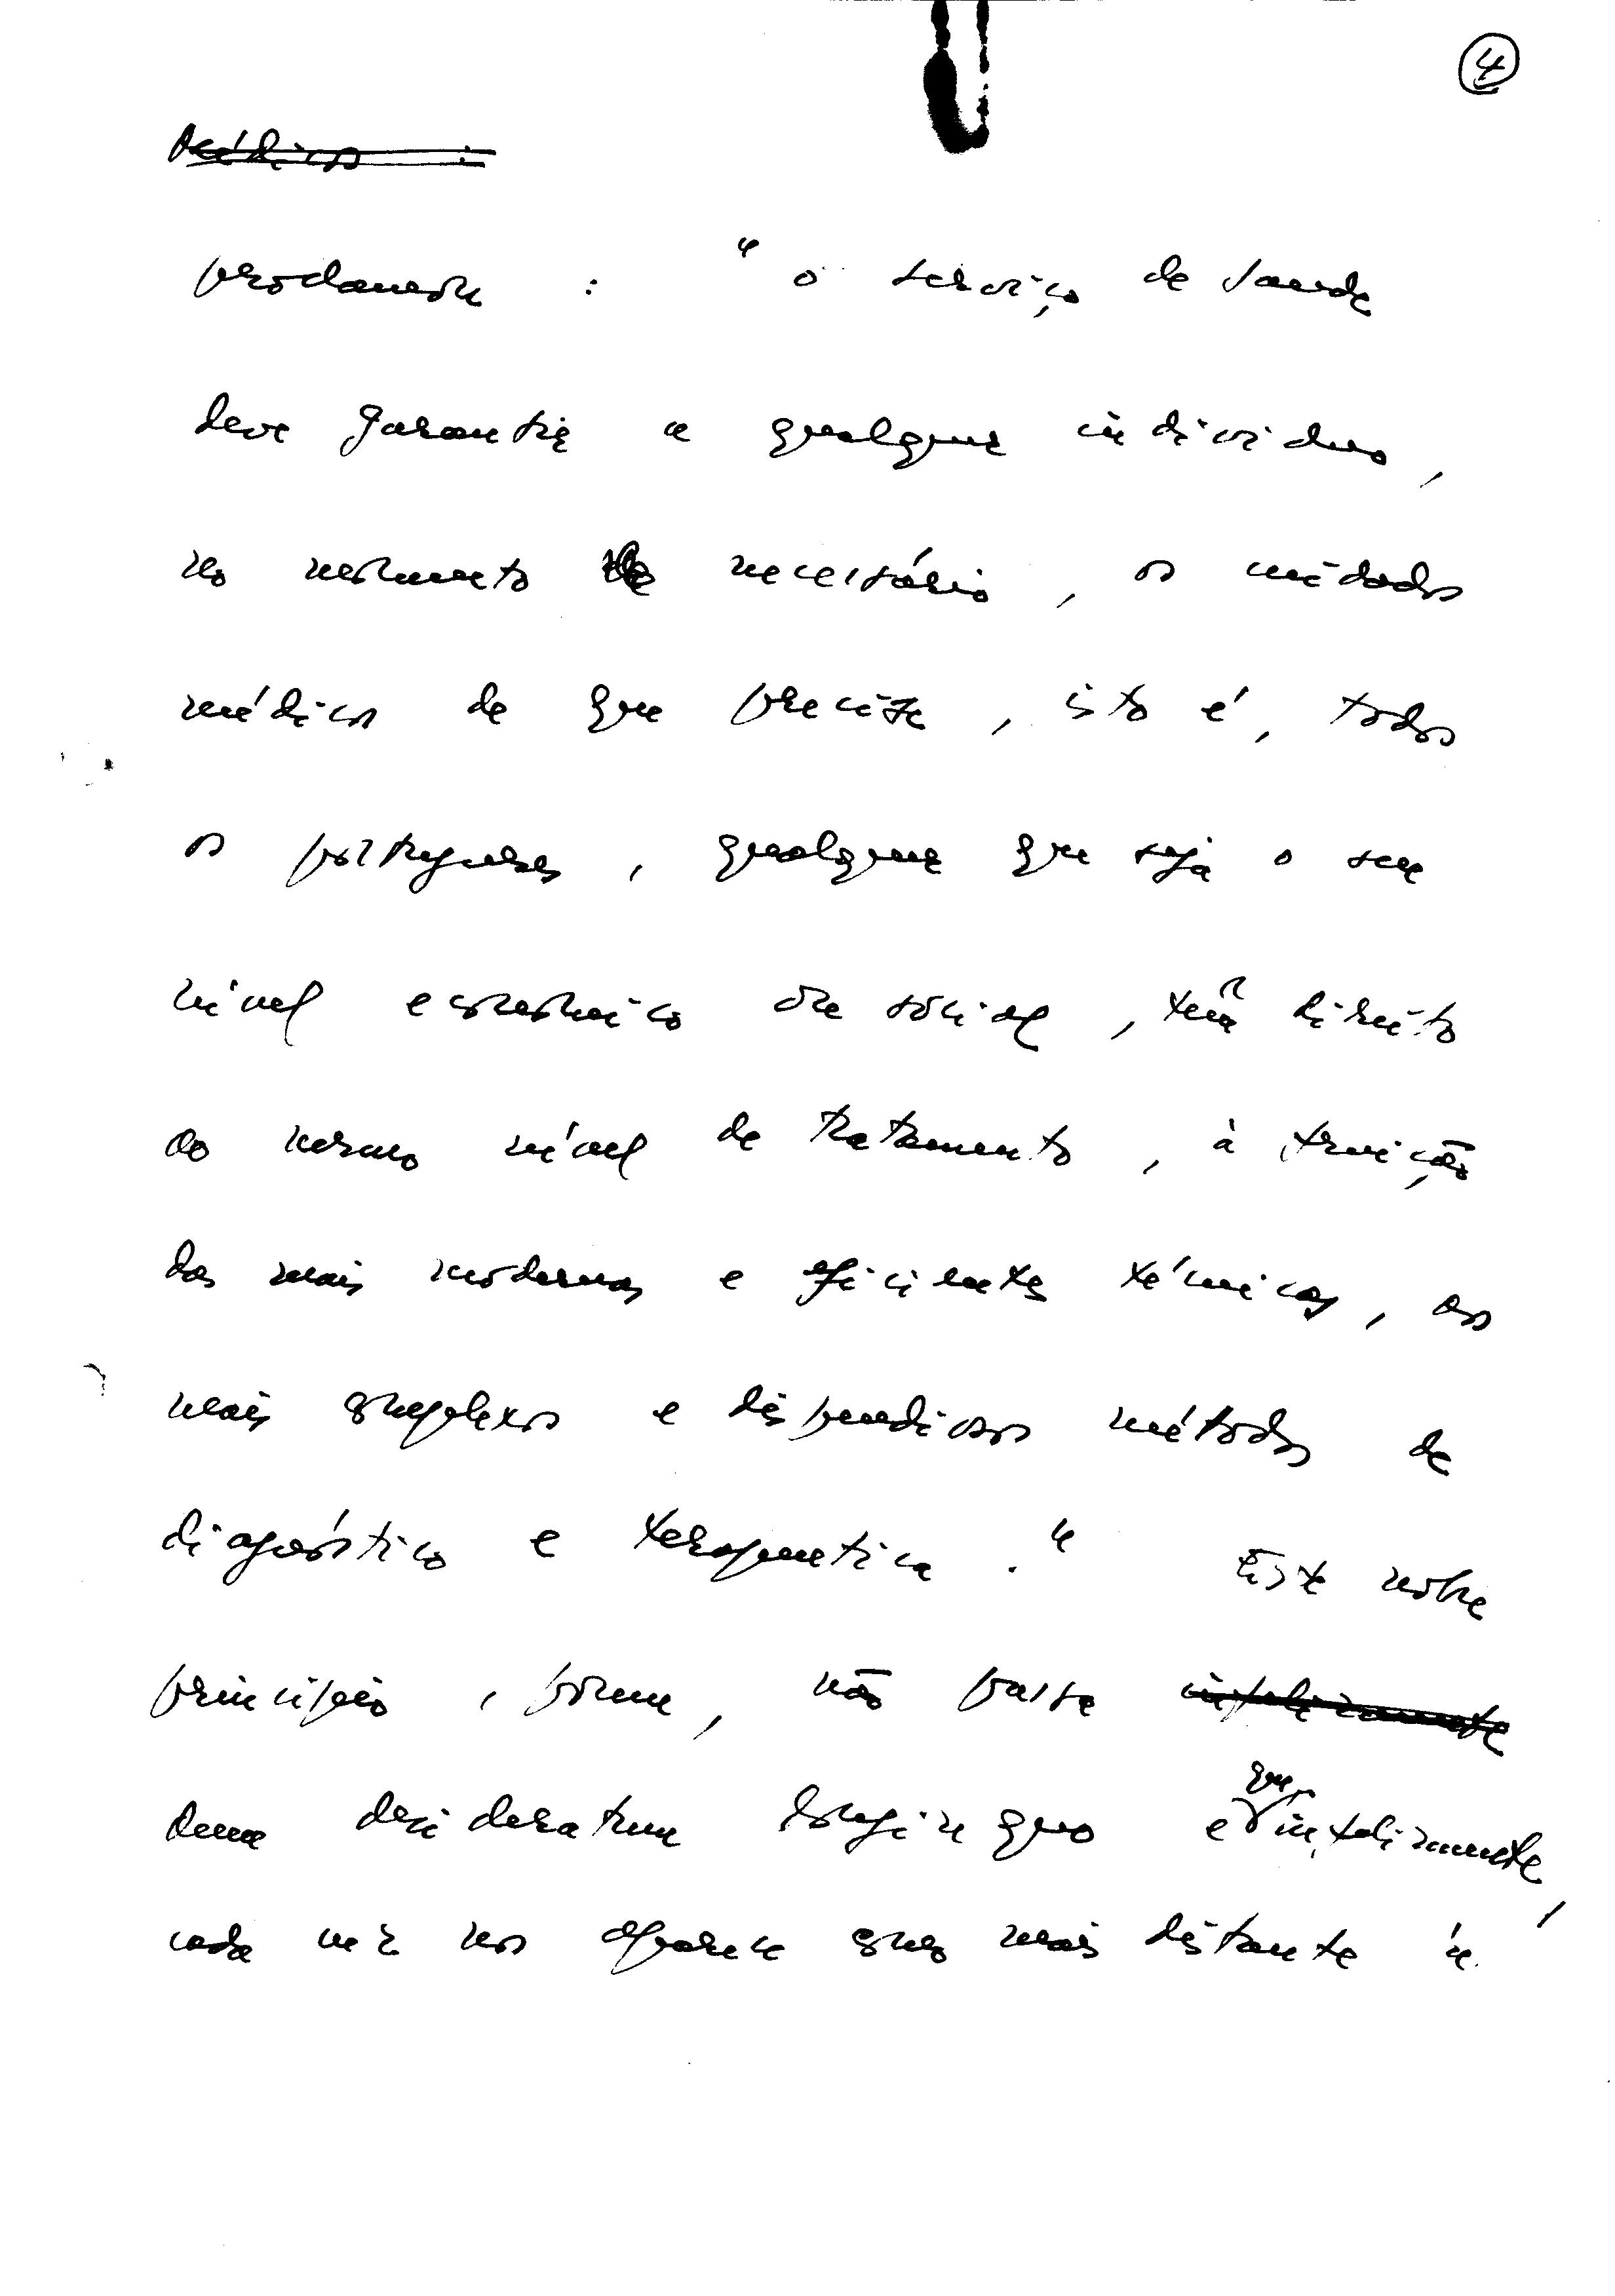 4
Médicos :
proclamou : " o serviço de saude
deve garantir a qualquer individuo,
no momento necessário, os cuidados
médicos de que precise, isto é, todos
os portugueses, qualquer que seja o seu
nível economico ou social, têm direito
ao mesmo nível de tratamento, à fruição
das mais modernas e eficientes técnicas, aos
mais complexos e dispendiosos métodos de
diagnóstico e terapeutica . " Este nobre
principio, porem, não passa infelizmente
dum desideratum longinquo e que infelizmente,
cada vez nos aparece como mais distante e